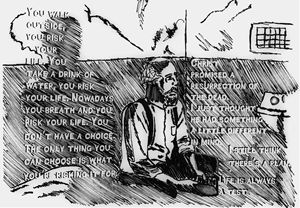 You walk
outside,
you risk
your
life. You
take a drink of
water, you risk
your life. Nowadays
you breath and you
risk your life. You
don't have a choice.
The only thing you
can choose is what
you're risking it for.
Christ
promised a
resurrection of
the dead.
I just thought
he had something
a little different
in mind.
I still think
there's a plan.
Life is always
a test.